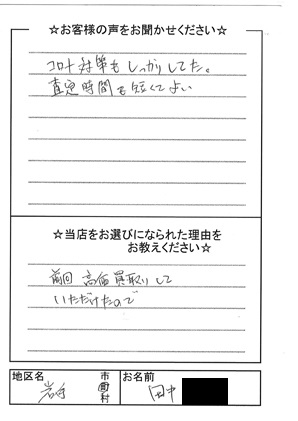 ☆お客様の声をお聞かせください☆
コロナ対策もしっかりしてた。
査定時間も短くてよい
☆当店をお選びになられた理由を
お教えください☆
前回 高価買取りして
いただけたので
地区名
岩手
市
町
村
お名前
田中